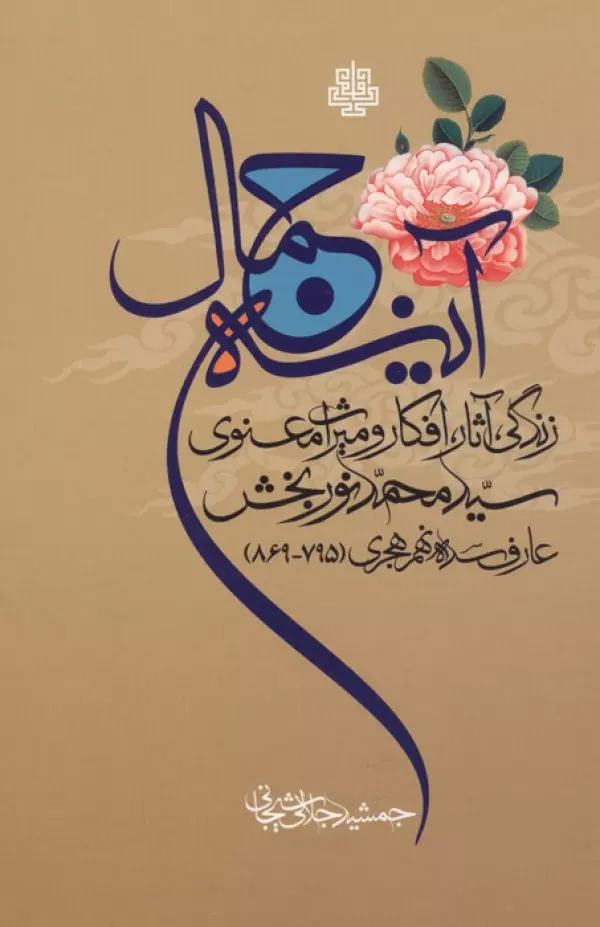 آینه جمال
زندگی، آثار، افکار و میراث معنوی
سیّد محمّد نوربخش
عارف سده نهم هجری (۷۹۵-۸۶۹)
جمشید جلالی شیجانی